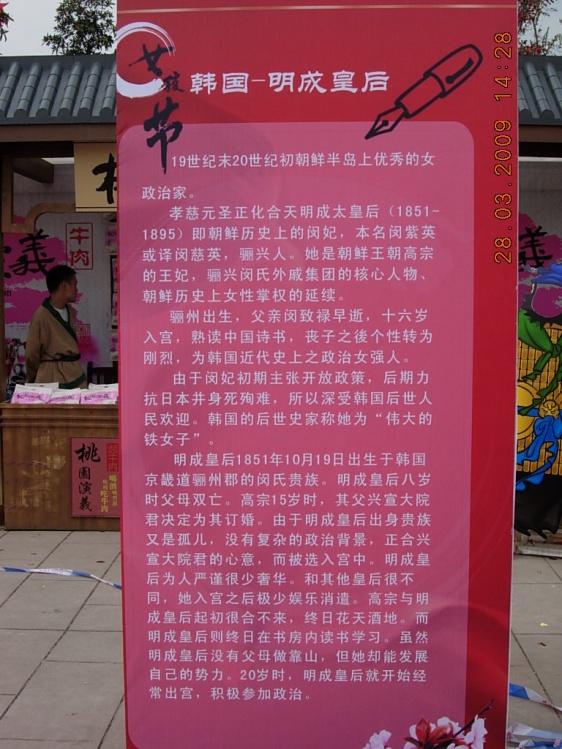 女孩节
韩国-明成皇后
19世纪末20世纪初朝鲜半岛上优秀的女
政治家。
孝慈元圣正化合天明成太皇后（1851-
1895）即朝鲜历史上的闵妃，本名闵紫英
或译闵慈英，骊兴人。她是朝鲜王朝高宗
的王妃，骊兴闵氏外戚集团的核心人物、
朝鲜历史上女性掌权的延续。
骊州出生，父亲闵致禄早逝，十六岁
入宫，熟读中国诗书，丧子之後個性转为
刚烈，为韩国近代史上之政治女强人。
由于闵妃初期主张开放政策，后期力
抗日本井身死殉难，所以深受韩国后世人
民欢迎。韩国的后世史家称她为“伟大的
铁女子”。
明成皇后1851年10月19日出生于韩国
京畿道骊州郡的闵氏贵族。明成皇后八岁
时父母双亡。高宗15岁时，其父兴宣大院
君决定为其订婚。由于明成皇后出身贵族
又是孤儿，没有复杂的政治背景，正合兴
宣大院君的心意，而被选入宫中。明成皇
后为人严谨很少奢华。和其他皇后很不
同，她入宫之后极少娱乐消遣。高宗与明
成皇后起初很合不来，终日花天酒地。而
明成皇后则终日在书房内读书学习。虽然
明成皇后没有父母做靠山，但她却能发展
自己的势力。20岁时，明成皇后就开始经
常出宫，积极参加政治。
28.03.2009 14:28
牛肉
義
桃園演義
吃牛肉